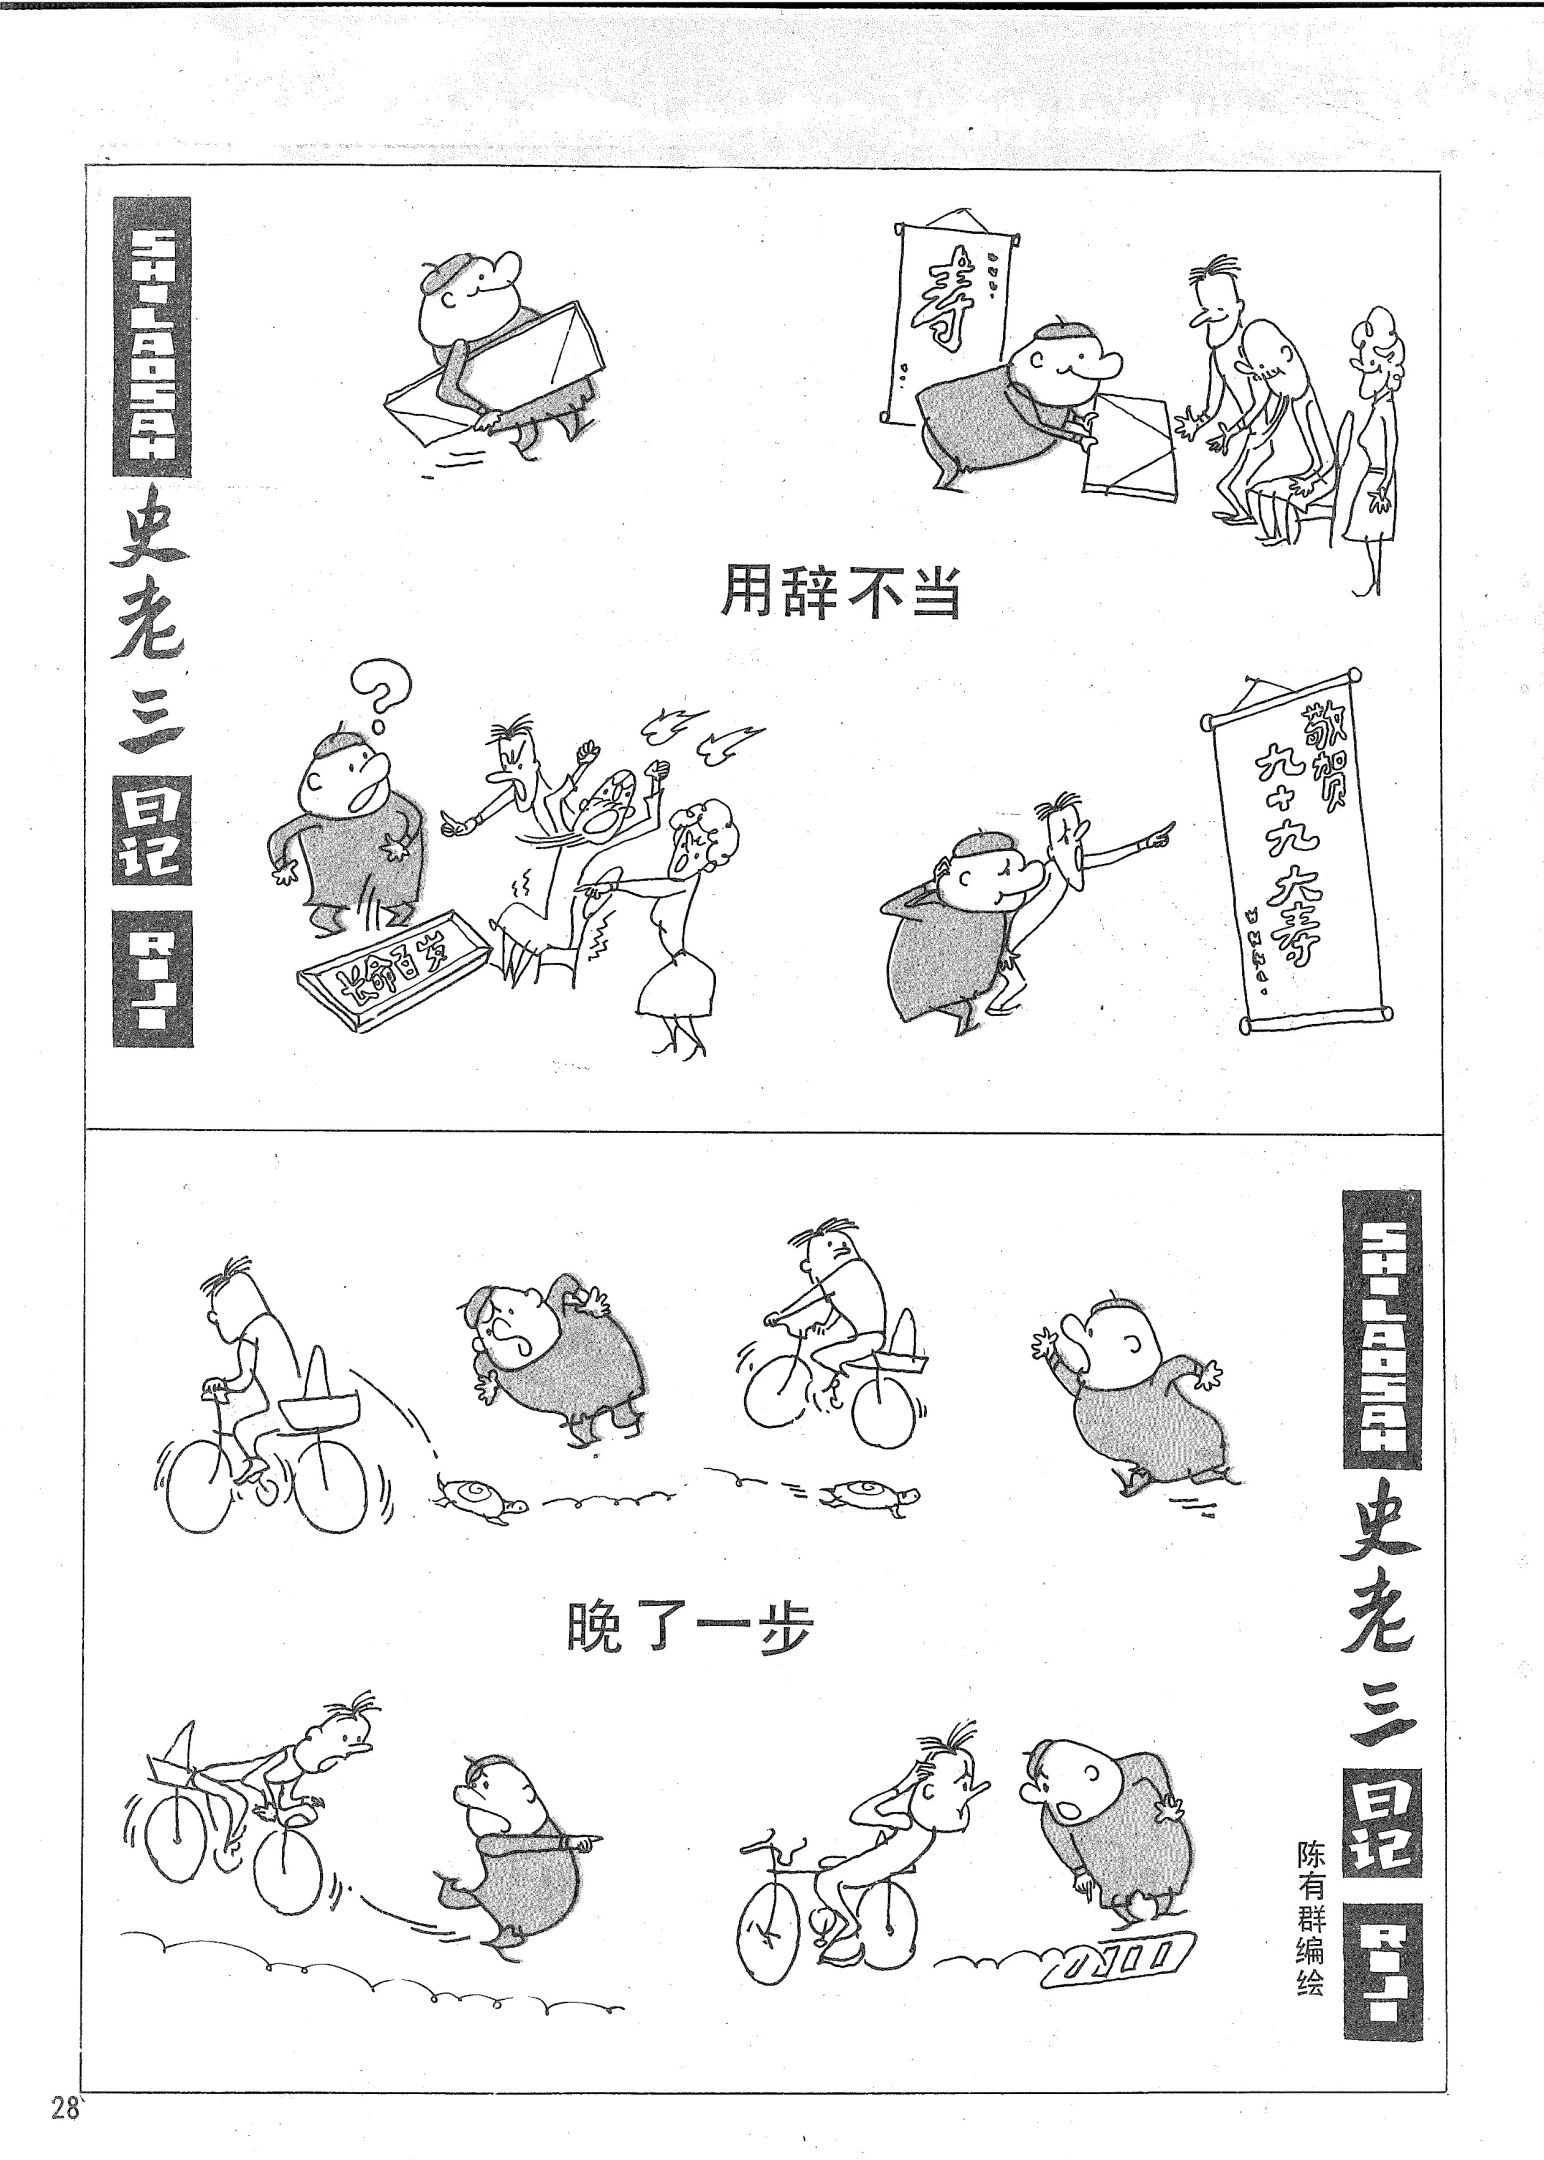 SHILAOSAN
史老三
日记
RIJI
寿
用辞不当
长命百岁
敬贺
九十九大寿
SHILAOSAN
史老三
日记
RIJI
晚了一步
陈有群编绘
28